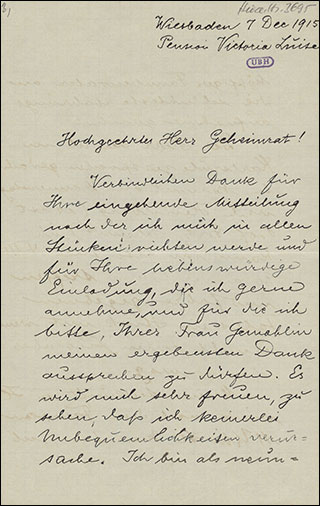 Wiesbaden 7 Dec 1915
Pension Victoria Luise
UBH
Hochgeehrter Herr Geheimrat!
Verbindlichen Dank für
Ihre eingehende Mitteilung
nach der ich mich in allen
Stücken richten werde und
für Ihre liebenswürdige
Einladung, die ich gerne
annehme, und für die ich
bitte, Ihrer Frau Gemahlin
meinen ergebensten Dank
aussprechen zu dürfen. Es
wird mich sehr freuen, zu
sehen, daß ich keinerlei
Unbequemlichkeiten verur-
sache. Ich bin als neun=